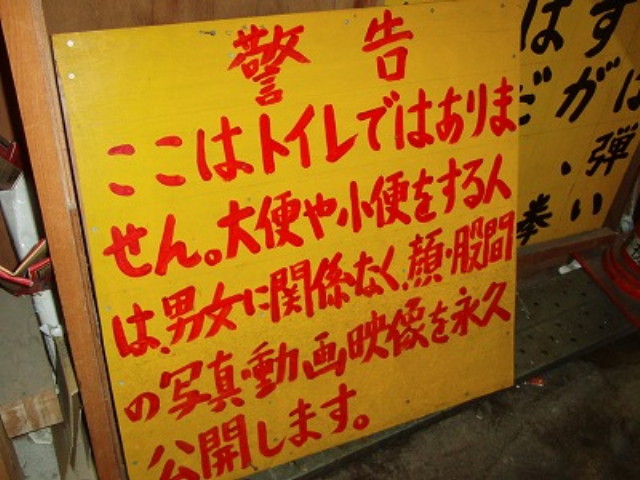 警告
ここはトイレではありま
せん。大便や小便をする人
は、男女に関係なく、顔・股間
の写真・動画映像を永久
公開します。
はず
だがは
、弾
拳い